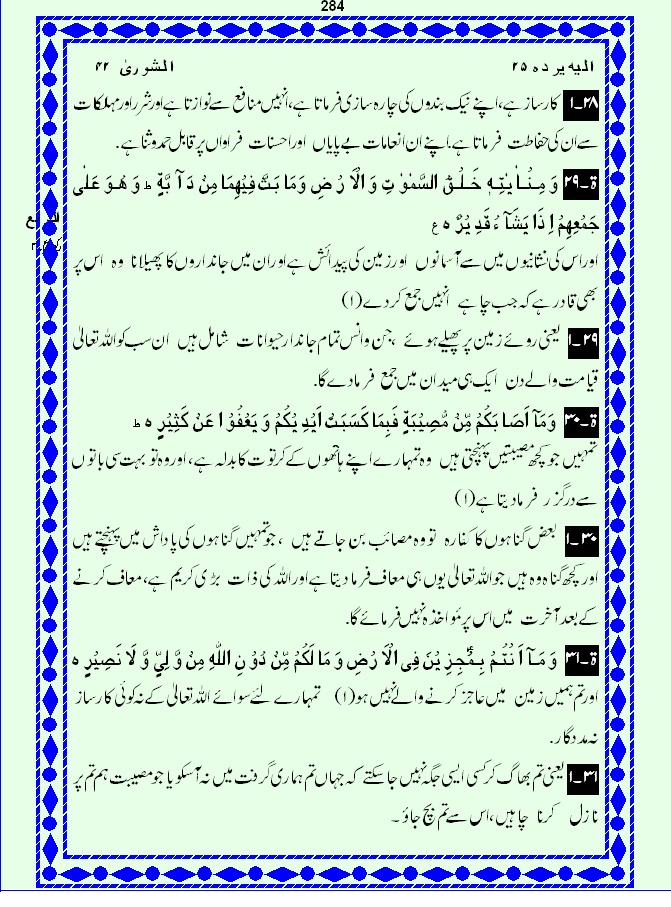 284
الیہ یردہ ۲۵ الشوریٰ ۴۲
۲۸۔۱ کارساز ہے، اپنے نیک بندوں کی چارہ سازی فرماتا ہے، انہیں منافع سے نوازتا ہے اور شرر اور مہلکات
سے ان کی حفاظت فرماتا ہے۔ اپنے ان انعامات بے پایاں اور احسنات فراواں پر قابل حمد و ثنا ہے۔
ق۔۲۹ وَ مِنْ اٰيٰتِهٖ خَلْقُ السَّمٰوٰتِ وَ الْاَرْضِ وَ مَا بَثَّ فِيْهِمَا مِنْ دَآبَّةٍ ط وَ هُوَ عَلٰى
جَمْعِهِمْ اِذَا يَشَآءُ قَدِيْرٌ ه ع
اور اس کی نشانیوں میں سے آسمانوں اور زمین کی پیدائش ہے اور ان میں جانداروں کا پھیلانا وہ اس پر
بھی قادر ہے کہ جب چاہے انہیں جمع کر دے (۱)
۲۹۔۱ یعنی روئے زمین پر پھیلے ہوئے ،جن و انس تمام جاندار حیوانات شامل ہیں ان سب کو اللہ تعالیٰ
قیامت والے دن ایک ہی میدان میں جمع فرما دے گا۔
ق۔۳۰ وَ مَآ اَصَابَكُمْ مِّنْ مُّصِيْبَةٍ فَبِمَا كَسَبَتْ اَيْدِيْكُمْ وَ يَعْفُوْا عَنْ كَثِيْرٍ ه ط
تمہیں جو کچھ مصیبتیں پہنچتی ہیں وہ تمہارے اپنے ہاتھوں کے کرتوت کا بدلہ ہے، اور وہ تو بہت سی باتوں
سے درگزر فرما دیتا ہے (۱)
۳۰۔۱ بعض گناہوں کا کفارہ تو وہ مصائب بن جاتے ہیں ،جو تمہیں گناہوں کی پاداش میں پہنچتے ہیں
اور کچھ گناہ وہ ہیں جو اللہ تعالیٰ یوں ہی معاف فرما دیتا ہے اور اللہ کی ذات بڑی کریم ہے، معاف کرنے
کے بعد آخرت میں اس پر مواخذہ نہیں فرمائے گا۔
ق۔۳۱ وَ مَآ اَنْتُمْ بِمُعْجِزِيْنَ فِى الْاَرْضِ وَ مَا لَكُمْ مِّنْ دُوْنِ اللّٰهِ مِنْ وَّلِيٍّ وَّ لَا نَصِيْرٍ ه
اور تم ہمیں زمین میں عاجز کرنے والے نہیں ہو (۱) تمہارے لئے سوائے اللہ تعالیٰ کے نہ کوئی کارساز
نہ مددگار۔
۳۱۔۱ یعنی تم بھاگ کر کسی ایسی جگہ نہیں جا سکتے کہ جہاں تم ہماری گرفت میں نہ آسکو یا جو مصیبت ہم تم پر
نازل کرنا چاہیں، اس سے تم بچ جاؤ ۔